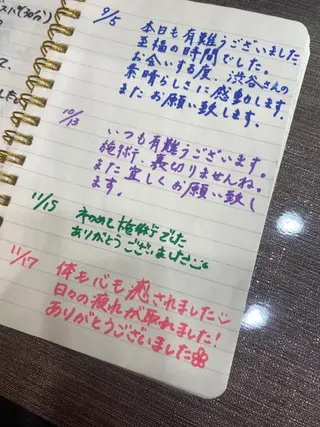 9/5
本日も有難うございました
至福の時間でした。
お会いする度、渋谷さんの
素晴らしさに感動します。
またお願い致します。
10/13
いつも有難うございます。
施術、裏切りませんね。
また宜しくお願い致し
ます。
11/15
初めて施術でした
ありがとうございました
11/17
体も心も癒されました
日々の疲れが取れました!
ありがとうございました